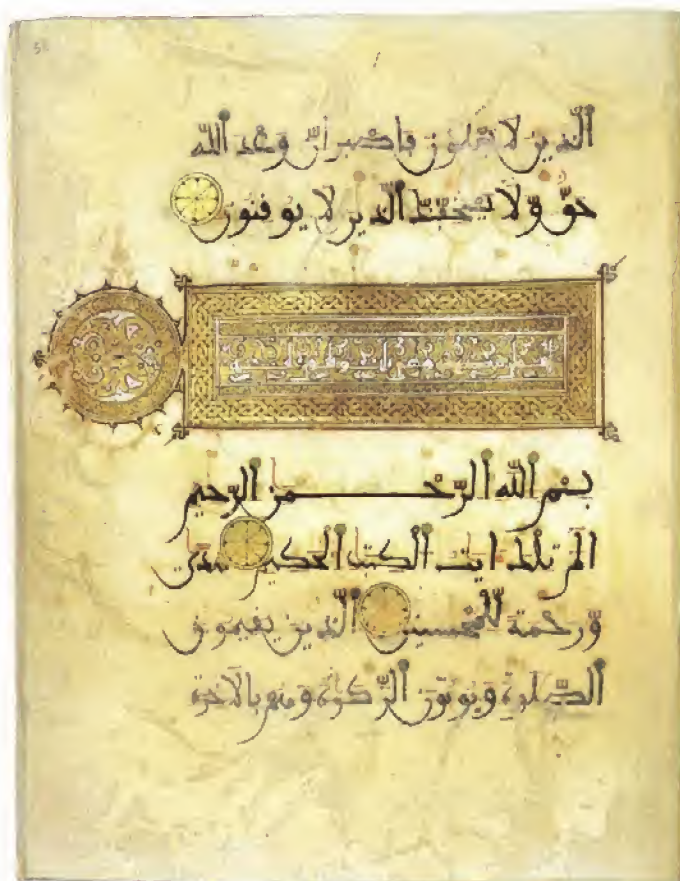 الذين لا يعلمون فاصبر ان وعد الله
حق ولا يستخفنك الذين لا يوقنون
بسم الله الرحمن الرحيم
الم تلك ايت الكتب الحكيم هدى
ورحمة للمحسنين الذين يقيمون
الصلوة ويوتون الزكوة وهم بالاخرة